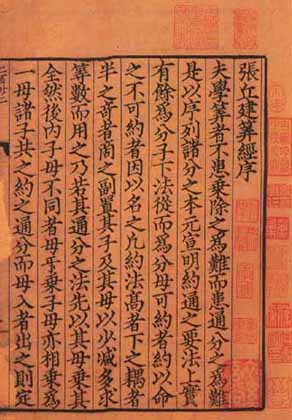 張丘建算經序
夫學算者不患乘除之為難而患通分之為難
是以序列諸分之本元宣明約通之要法上實
有餘為分子下法從而為分母可約者約以命
之不可約者因以名之凡約法高者下之耦者
半之奇者商之副置其子及其母以少減多求
等數而用之乃若其通分之法先以其母乘其
全然後內子母不同者母乎乘子母亦相乘為
一母諸子共之約之通分而母入者出之則定